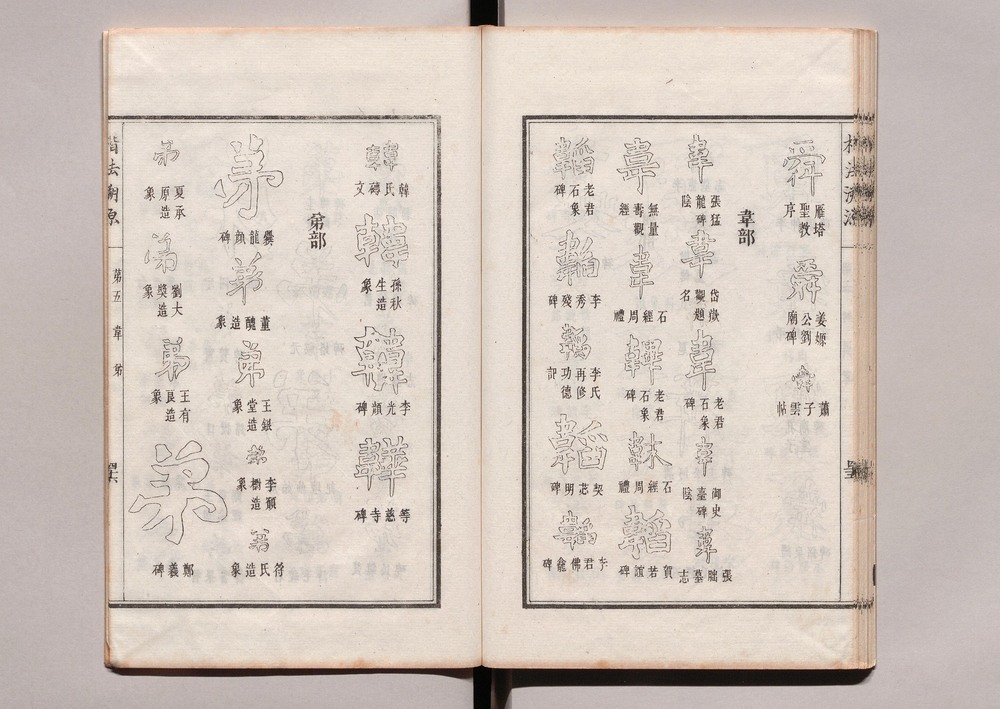 舜 雁塔聖教序
舜 姜嫄公劉廟碑
舜 蕭子雲帖
韋部
韋 張猛龍碑陰
韋 岱嶽觀題名
韋 老君石象碑
韋 御史臺碑陰
韋 張朏墓志
韋 無量壽觀經
韋 石經周禮
韠 老君石象碑
韎 石經周禮
韜 賀若誼碑
韜 老君石象碑
韜 李秀殘碑
韜 李氏再修功德記
韜 契苾明碑
韜 李君佛龕碑
韓 韓氏磚文
韓 孫秋生造象
韓 李光顏碑
韡 等慈寺碑
弟部
弟 爨龍顏碑
弟 董醜造象
弟 王銀堂造象
弟 李顯樹造象
弟 符氏造象
弟 夏承原造象
弟 劉大奬造象
弟 王有良造象
弟 鄭羲碑
楷法溯原
第五 韋 弟